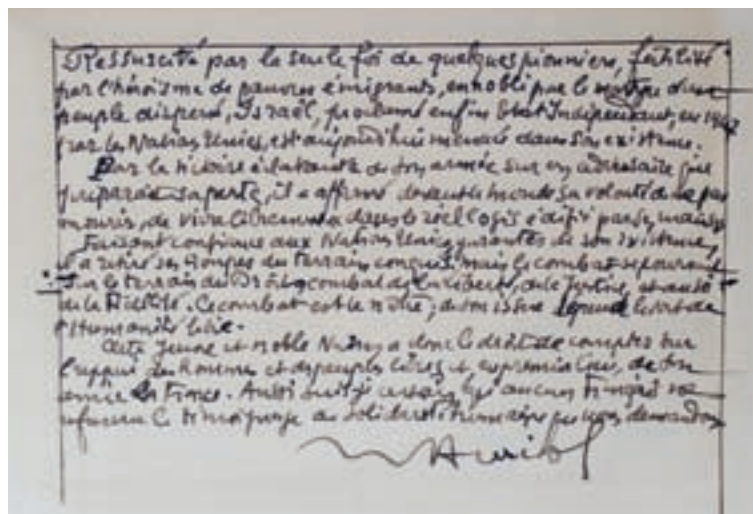 Ressuscité par la seule foi de quelques pionniers, fertilisé
par l'héroïsme de pauvres émigrants, ennobli par le martyre d'un
peuple dispersé, Israël, proclamé enfin Etat Indépendant, en 1947
par les Nations Unies, est aujourd'hui menacé dans son existence.
Par la victoire éclatante de son armée sur un adversaire qui
préparait sa perte, il a affirmé devant le monde sa volonté de ne pas
mourir, de vivre dans le logis édifié par ses mains
Faisant confiance aux Nations Unies garantes de son existence,
il a retiré ses troupes des terrains conquis, mais le combat se poursuit
sur le terrain du Droit, combat de la liberté, de la Justice, et aussi
de la Fidélité. Ce combat est le nôtre, de son issue dépend le sort de
l'Humanité libre.
Cette jeune et noble Nation a donc le droit de compter sur
l'appui des hommes et des peuples libres et, en premier lieu, de son
amie la France. Aussi suis-je certain qu'aucun Français ne
refusera le témoignage de solidarité que nous demandons